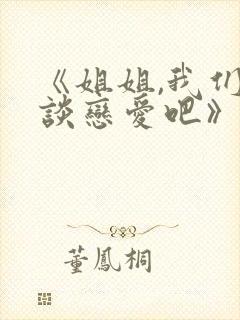 《姐姐,我们
談戀愛吧》
董鳳桐